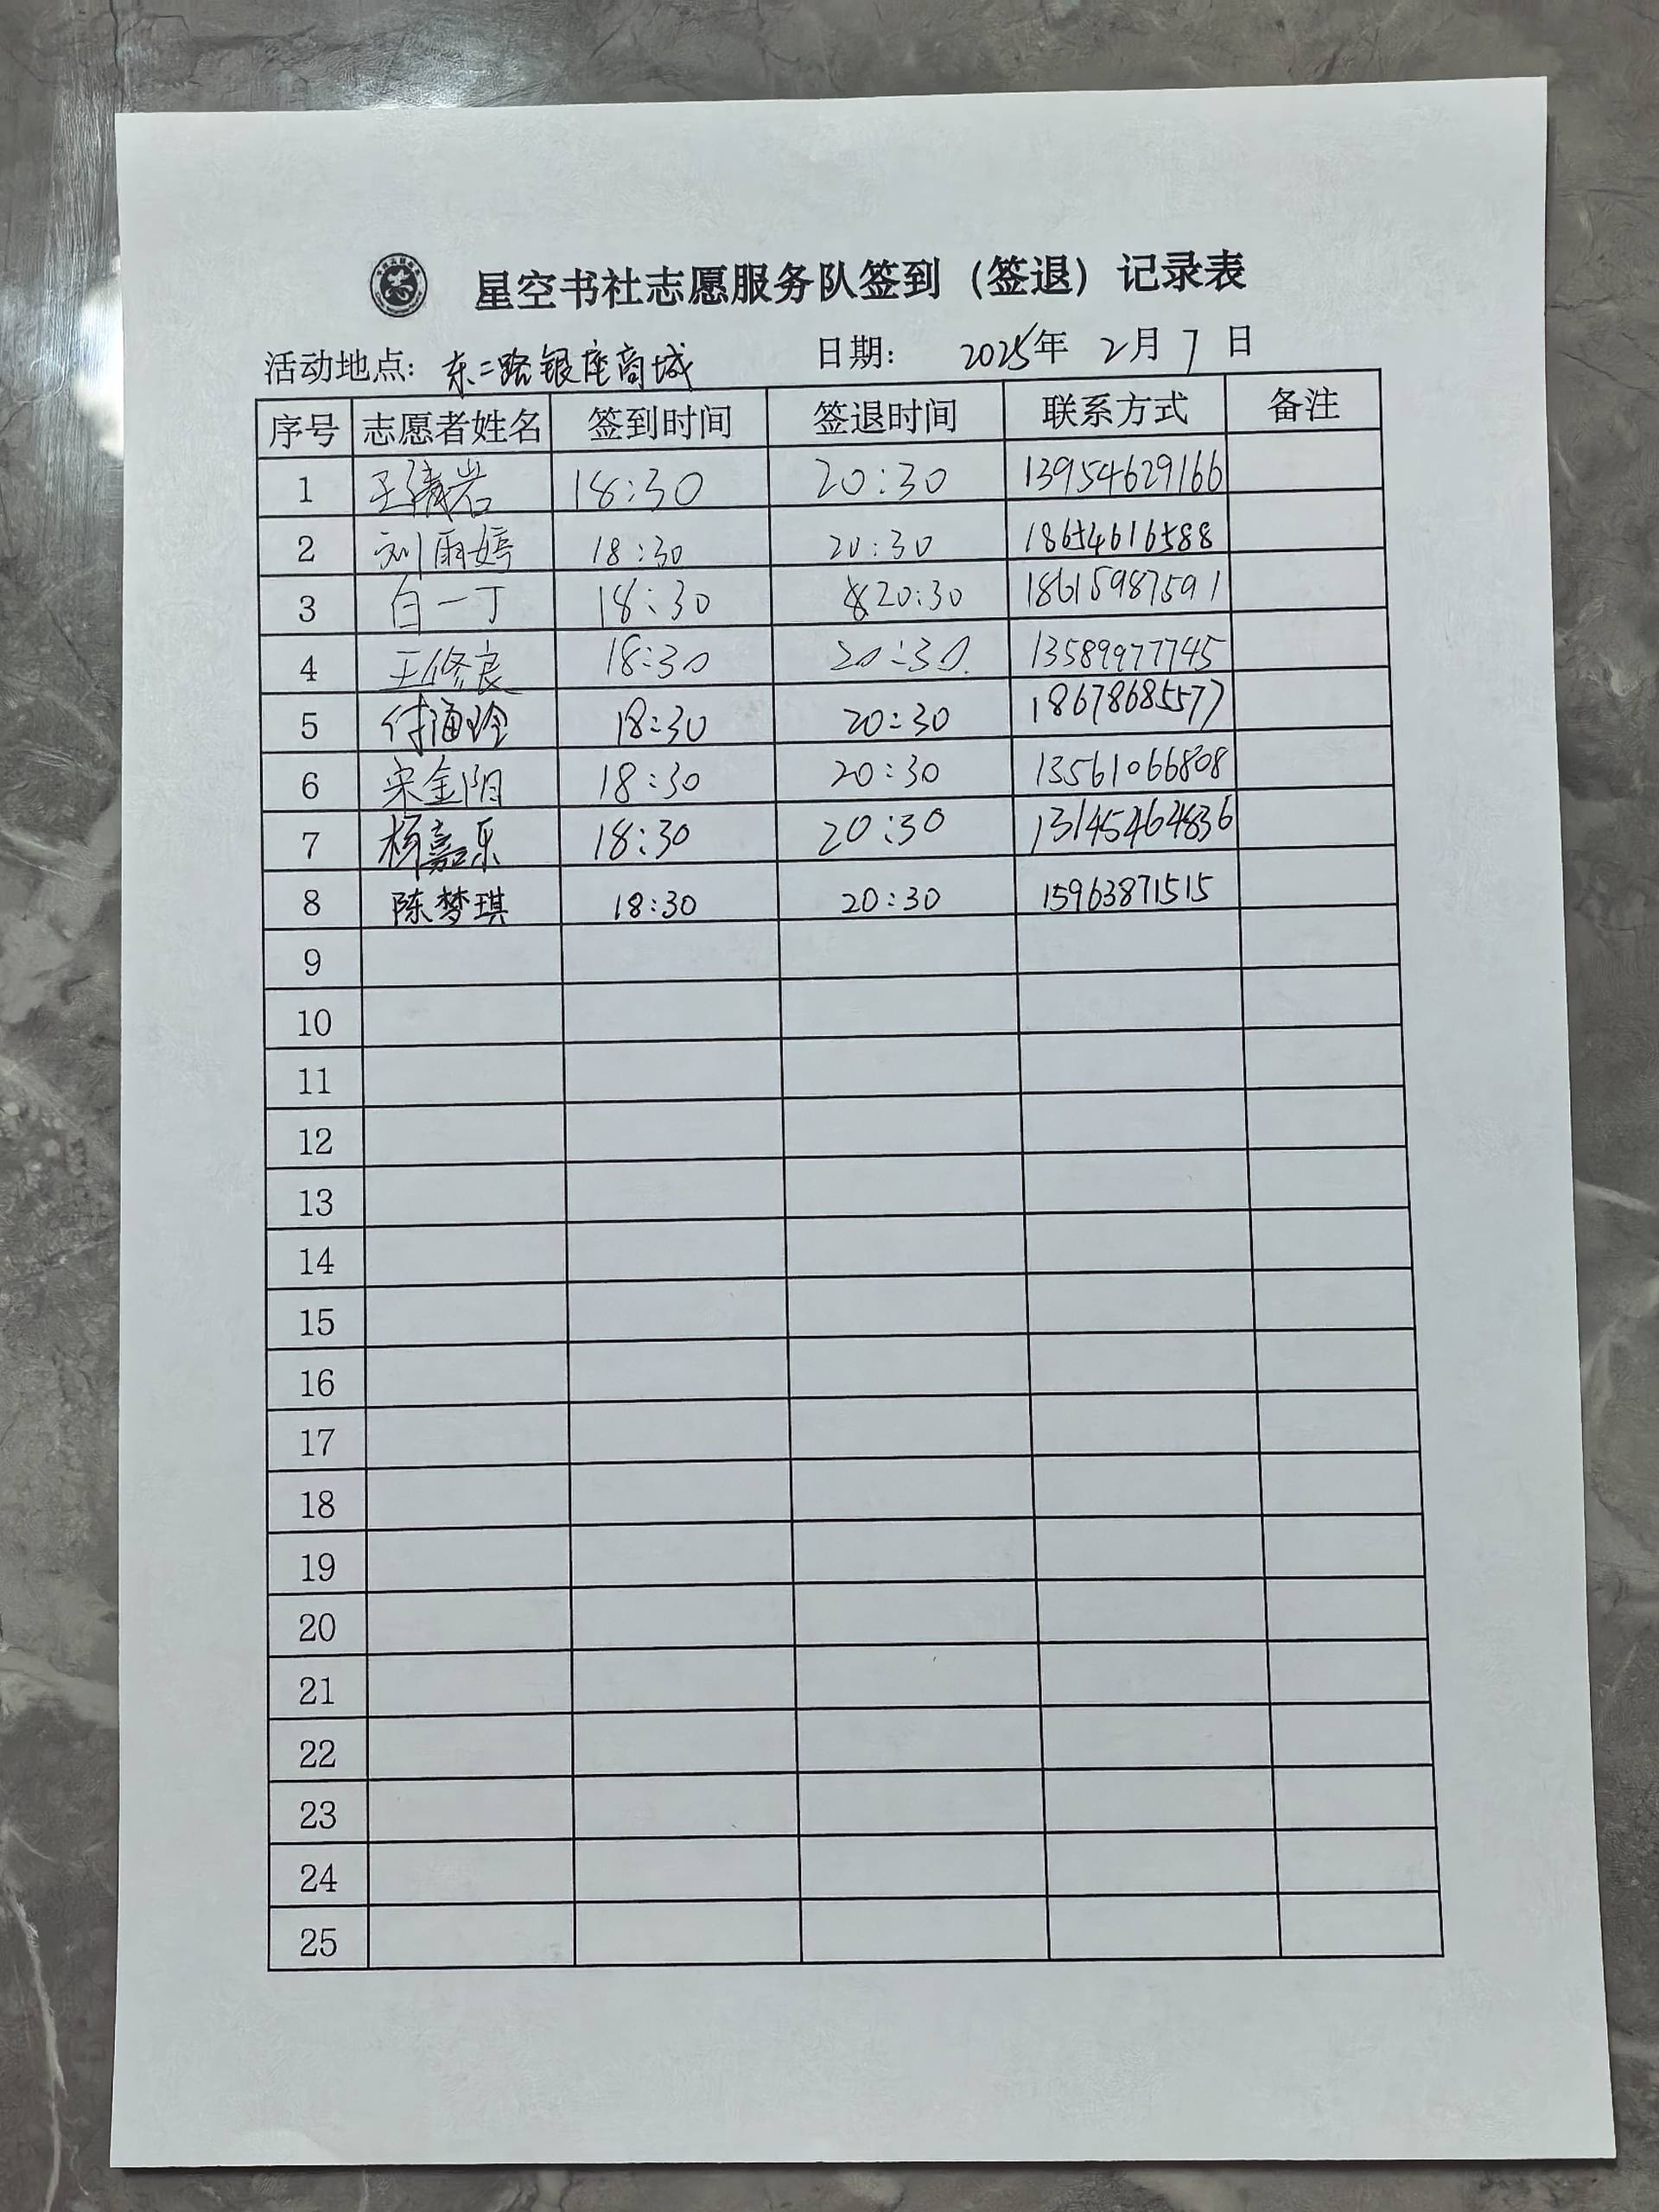 星空书社志愿服务队签到（签退）记录表
活动地点：东二路银座商城 日期： 2025年 2月 7 日
序号 志愿者姓名 签到时间 签退时间 联系方式 备注
1 18:30 20:30 13954629166
2 刘雨婷 18:30 20:30 18654616588
3 白一丁 18:30 20:30 18615987591
4 王修良 18:30 20:30 13589977745
5 18:30 20:30 18678685577
6 宋金阳 18:30 20:30 13561066808
7 杨嘉乐 18:30 20:30 13145464836
8 陈梦琪 18:30 20:30 15963871515
9
10
11
12
13
14
15
16
17
18
19
20
21
22
23
24
25